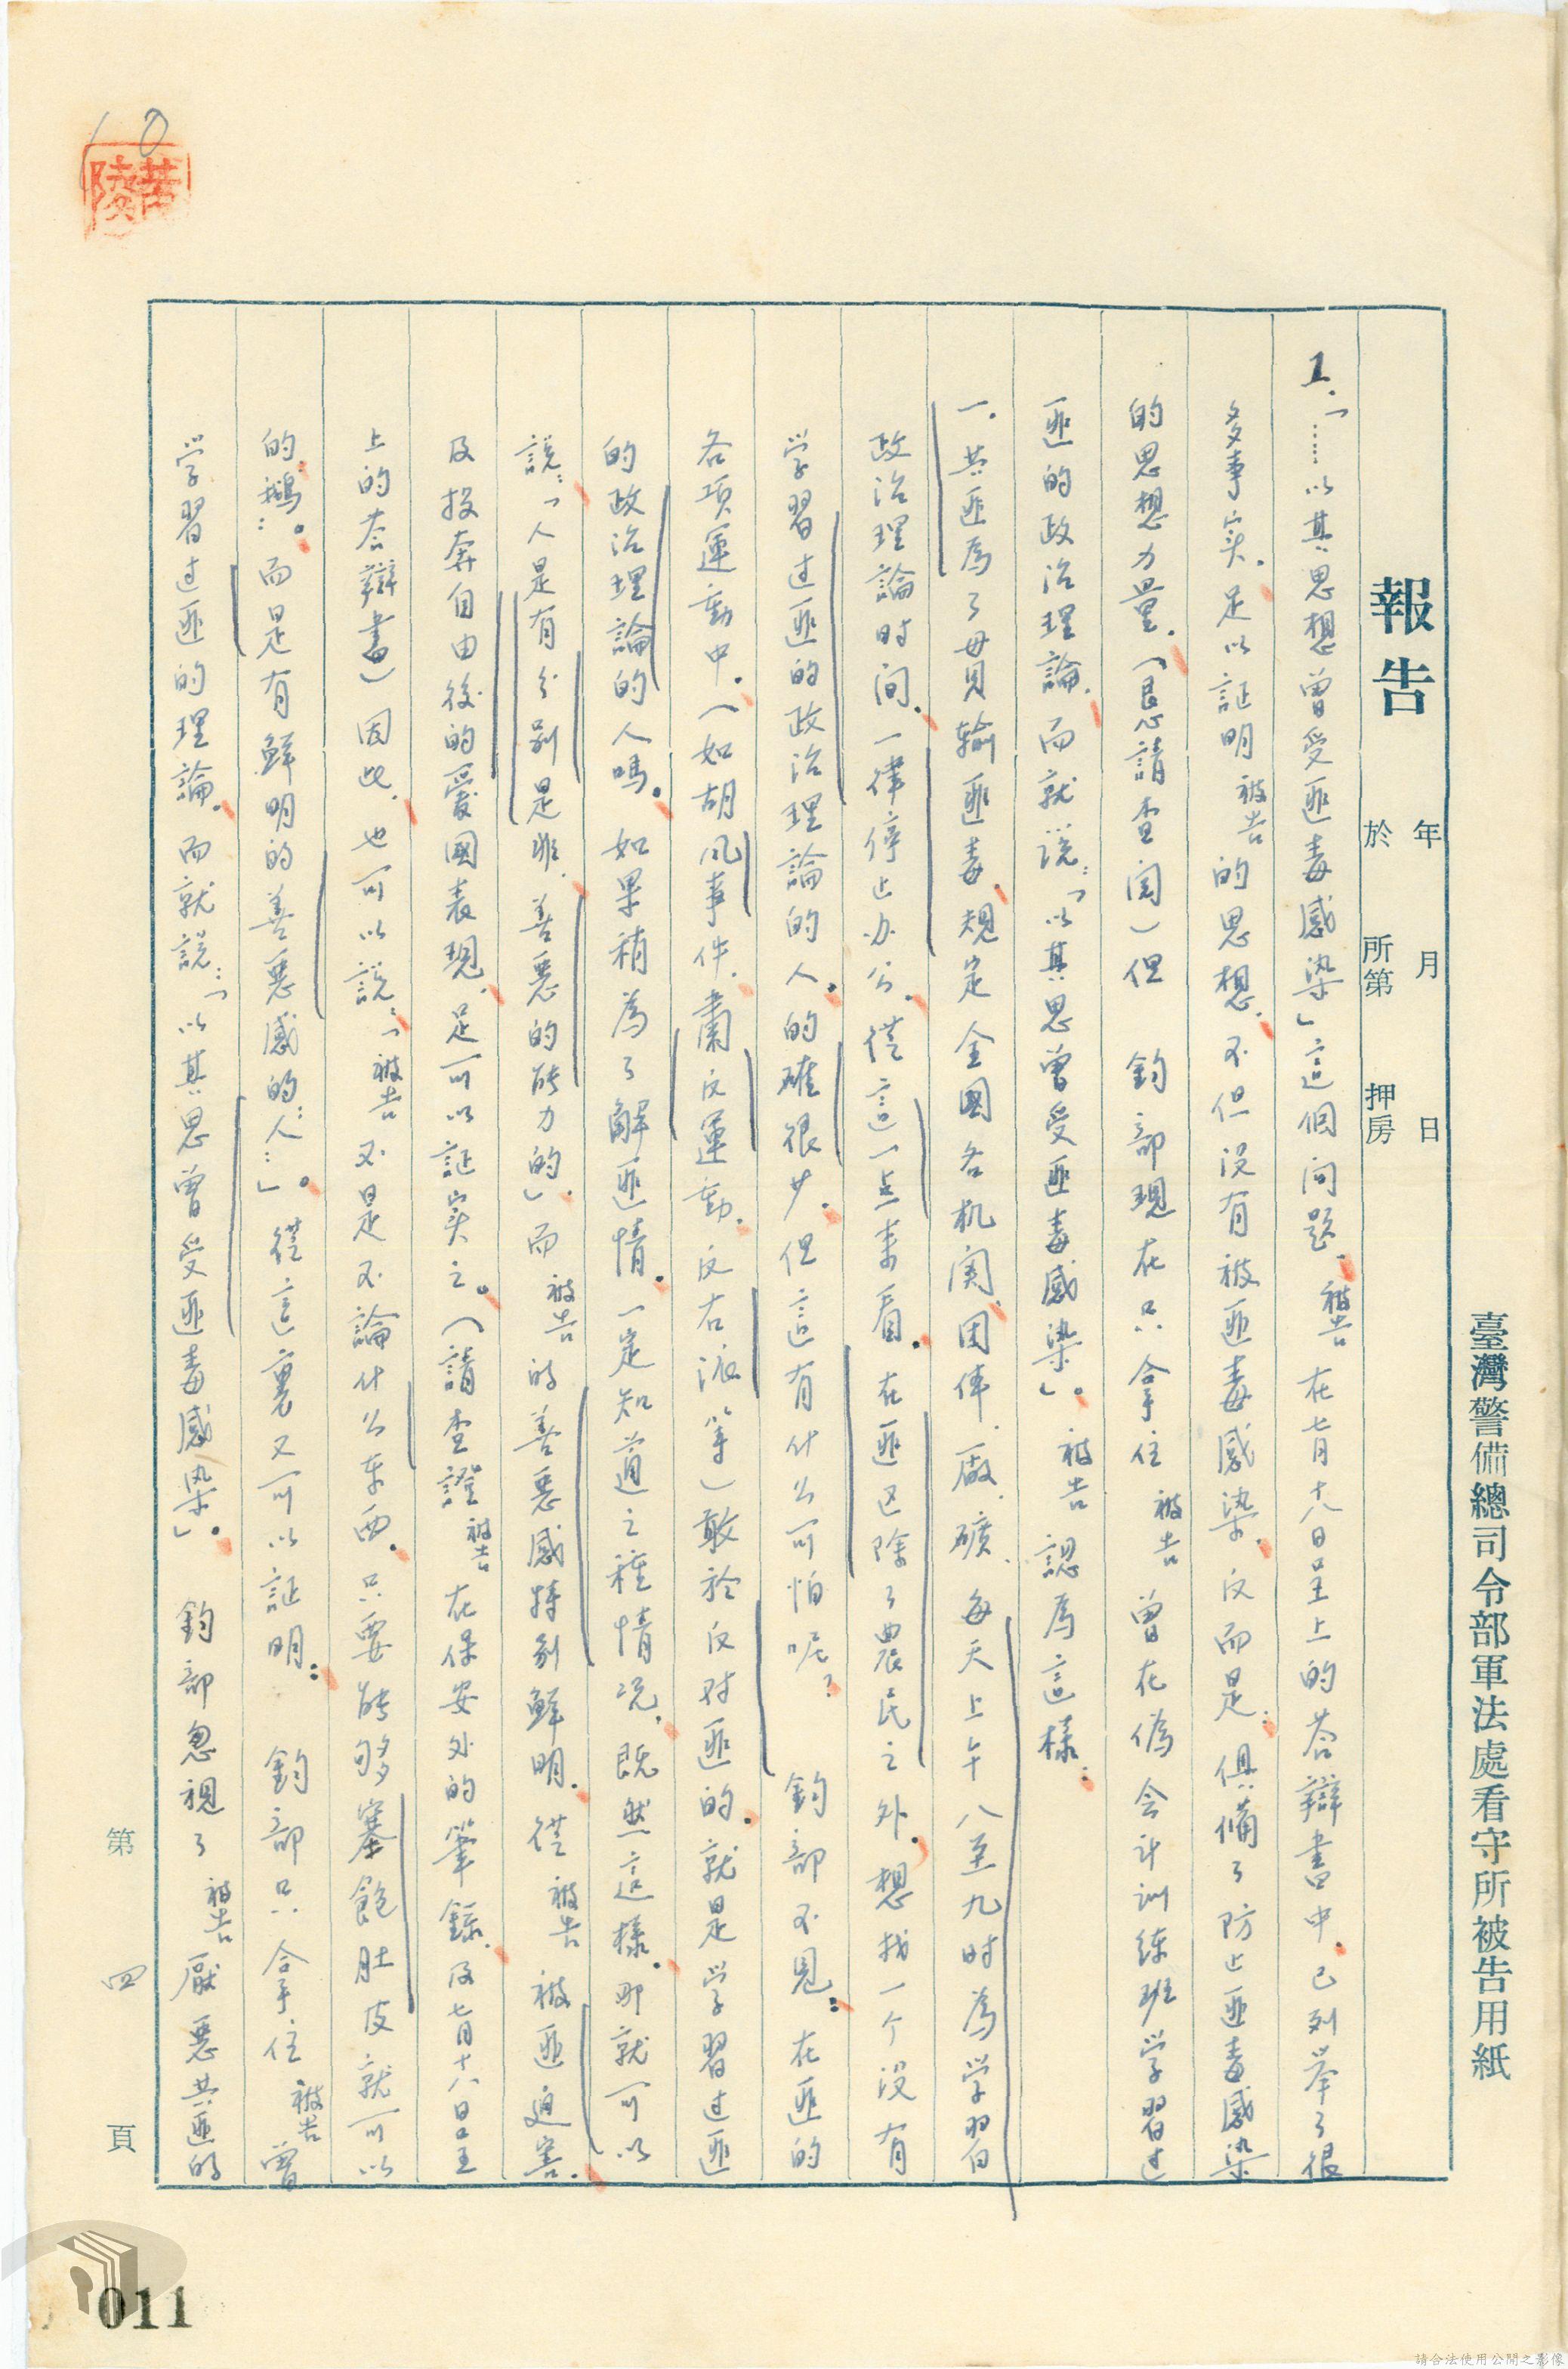 臺灣警備總司令部軍法處看守所被告用紙
報告
年 月 日
於 所第 押房
1.「……以其思想曾受匪毒感染」這個问題.被告 在七月十八日呈上的答辯書中.已列举了很
多事实.足以証明被告的思想.不但没有被匪毒感染.反而是:俱備了防止匪毒感染
的思想力量.(恳請查阅)但 鈞部現在只拿住 被告 曾在偽会计训练班学習过
匪的政治理論.而就説:「以其思曾受匪毒感染」。被告 認為這樣:
一.共匪為了毋貝输匪毒.規定全國各机関.团体.廠.礦.每天上午八至九时為学習
政治理論时间.一律停止办公.從這一点來看.在匪区除了農民之外.想找一个没有
学習过匪的政治理論的人.的確很少.但這有什么可怕呢?鈞部不見:在匪的
各項運動中.(如胡风事件.肅反運動.反右派等)敢於反对匪的.就是学習过匪
的政治理論的人嗎.如果稍為了解匪情.一定知道之種情况.既然這樣.那就可以
說:「人是有分别是非.善惡的能力的」.而 被告 的善惡感特别鮮明.從 被告 被匪迫害.
及投奔自由後的愛國表現.足可以証実之。(請查證 被告 在保安处的筆録.及七月十八日呈
上的答辯書)因此.也可以説:「被告 不是不論什么东西.只要能够塞飽肚皮就可以
的鵝:。而是有鮮明的善惡感的:人:」。從這裏又可以証明:鈞部只拿住 被告 曾
学習过匪的理論.而就説:「以其思曾受匪毒感染」.鈞部忽視了 被告 厭惡共匪的
第 四 頁
10
011
請合法使用公開之影像